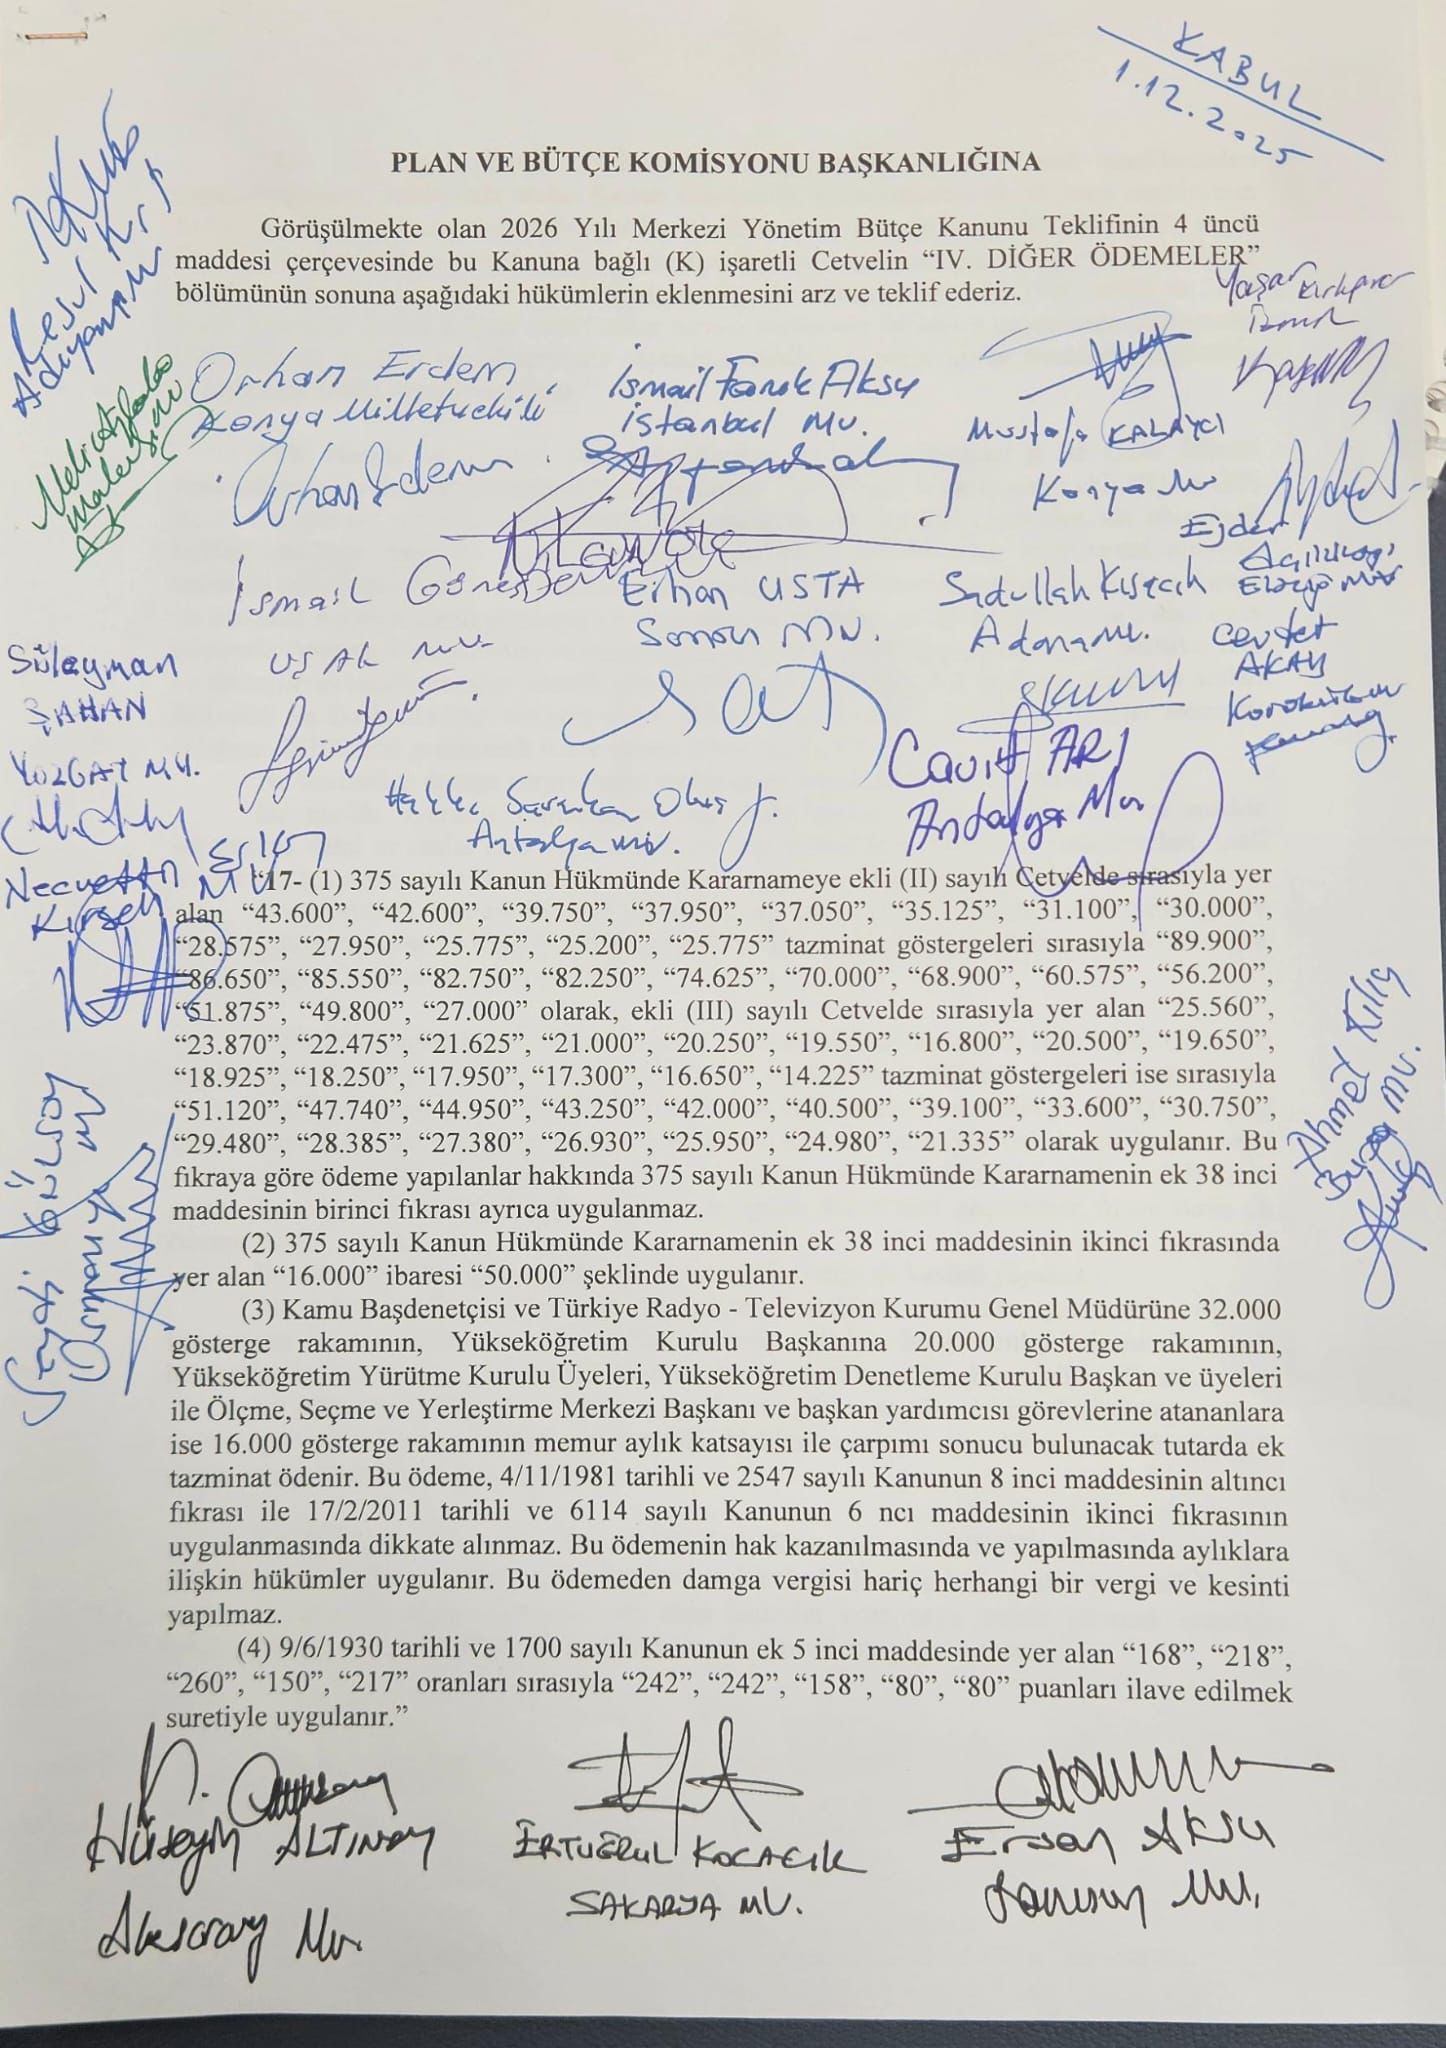 KABUL
1.12.2025
PLAN VE BÜTÇE KOMİSYONU BAŞKANLIĞINA
Görüşülmekte olan 2026 Yılı Merkezi Yönetim Bütçe Kanunu Teklifinin 4 üncü
maddesi çerçevesinde bu Kanuna bağlı (K) işaretli Cetvelin “IV. DİĞER ÖDEMELER”
bölümünün sonuna aşağıdaki hükümlerin eklenmesini arz ve teklif ederiz.
Resul Kurt
Adıyaman
Orhan Erdem
Konya Milletvekili
Orhan Erdem
İsmail Faruk Aksu
İstanbul Mv.
Mustafa KALAYCI
Konya Mv
Yaşar Kırkpınar
İzmir
İsmail Güneş
UŞAK MV.
Erhan USTA
Samsun Mv.
Sadullah Kısacık
Adana Mv.
Ejder
Açıkkapı
Elazığ Mv
Cevdet
AKAY
Karabük
Süleyman
ŞAHAN
YOZGAT MV.
Cavit ARI
Antalya Mv
Antalya Mv.
Necmettin Erkan
Kırşehir MV
“17- (1) 375 sayılı Kanun Hükmünde Kararnameye ekli (II) sayılı Cetvelde sırasıyla yer
alan “43.600”, “42.600”, “39.750”, “37.950”, “37.050”, “35.125”, “31.100”, “30.000”,
“28.575”, “27.950”, “25.775”, “25.200”, “25.775” tazminat göstergeleri sırasıyla “89.900”,
“86.650”, “85.550”, “82.750”, “82.250”, “74.625”, “70.000”, “68.900”, “60.575”, “56.200”,
“51.875”, “49.800”, “27.000” olarak, ekli (III) sayılı Cetvelde sırasıyla yer alan “25.560”,
“23.870”, “22.475”, “21.625”, “21.000”, “20.250”, “19.550”, “16.800”, “20.500”, “19.650”,
“18.925”, “18.250”, “17.950”, “17.300”, “16.650”, “14.225” tazminat göstergeleri ise sırasıyla
“51.120”, “47.740”, “44.950”, “43.250”, “42.000”, “40.500”, “39.100”, “33.600”, “30.750”,
“29.480”, “28.385”, “27.380”, “26.930”, “25.950”, “24.980”, “21.335” olarak uygulanır. Bu
fıkraya göre ödeme yapılanlar hakkında 375 sayılı Kanun Hükmünde Kararnamenin ek 38 inci
maddesinin birinci fıkrası ayrıca uygulanmaz.
(2) 375 sayılı Kanun Hükmünde Kararnamenin ek 38 inci maddesinin ikinci fıkrasında
yer alan “16.000” ibaresi “50.000” şeklinde uygulanır.
(3) Kamu Başdenetçisi ve Türkiye Radyo - Televizyon Kurumu Genel Müdürüne 32.000
gösterge rakamının, Yükseköğretim Kurulu Başkanına 20.000 gösterge rakamının,
Yükseköğretim Yürütme Kurulu Üyeleri, Yükseköğretim Denetleme Kurulu Başkan ve üyeleri
ile Ölçme, Seçme ve Yerleştirme Merkezi Başkanı ve başkan yardımcısı görevlerine atananlara
ise 16.000 gösterge rakamının memur aylık katsayısı ile çarpımı sonucu bulunacak tutarda ek
tazminat ödenir. Bu ödeme, 4/11/1981 tarihli ve 2547 sayılı Kanunun 8 inci maddesinin altıncı
fıkrası ile 17/2/2011 tarihli ve 6114 sayılı Kanunun 6 ncı maddesinin ikinci fıkrasının
uygulanmasında dikkate alınmaz. Bu ödemenin hak kazanılmasında ve yapılmasında aylıklara
ilişkin hükümler uygulanır. Bu ödemeden damga vergisi hariç herhangi bir vergi ve kesinti
yapılmaz.
(4) 9/6/1930 tarihli ve 1700 sayılı Kanunun ek 5 inci maddesinde yer alan “168”, “218”,
“260”, “150”, “217” oranları sırasıyla “242”, “242”, “158”, “80”, “80” puanları ilave edilmek
suretiyle uygulanır.”
Ahmet Kılıç
Bursa Mv.
Hüseyin ALTINSOY
Aksaray Mv.
ERTUĞRUL KOCACIK
SAKARYA MV.
Ersan Aksu
Samsun Mv.